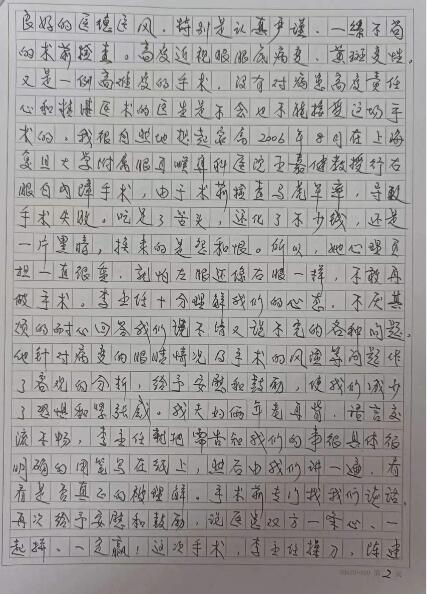 良好的医德医风，特别是认真严谨、一丝不苟
的术前检查。高度近视眼眼底病变、黄斑变性，
又是一例高难度的手术，没有对病患高度责任
心和精湛医术的医生是不会也不能接受这场手
术的。我很自然地想起家属2006年8月在上海
复旦大学附属眼耳喉鼻科医院王嘉健教授行右
眼白内障手术，由于术前检查马虎草率，导致
手术失败。吃足了苦头，还化了不少钱，还是
一片黑暗，换来的是怨和恨。所以，她心理负
担一直很重，就怕左眼还像右眼一样，不敢再
做手术。李主任十分理解我们的心态，不厌其
烦的耐心回答我们说不清又说不完的各种问题。
他针对病变的眼睛情况及手术的风险等问题作
了客观的分析，给予安慰和鼓励，使我们减少
了恐惧和紧张感。我夫妇俩年老耳背，语言交
流不畅，李主任就把需告知我们的事很具体很
明确的用笔写在纸上，然后由我们讲一遍，看
看是否真正的被理解。手术前专门找我们谈话，
再次给予安慰和鼓励，说医患双方一条心、一
起拼、一定赢，这次手术，李主任操刀，陈建
第2页